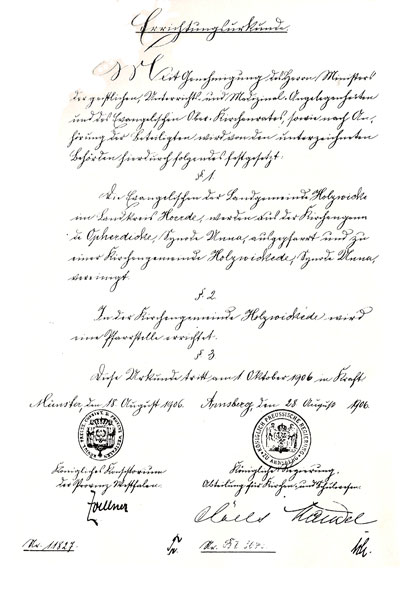 Errichtungsurkunde.
Mit Genehmigung des Herrn Ministers
der geistlichen, Unterrichts- und Medizinal-Angelegenheiten
und des Evangelischen Ober-Kirchenrates, sowie nach An-
hörung der Beteiligten wird von den unterzeichneten
Behörden hierdurch folgendes festgesetzt:
§ 1
Die Evangelischen der Landgemeinde Holzwickede
im Landkreis Hoerde, werden aus der Kirchengemein-
de Opherdicke, Synode Unna, ausgepfarrt und zu
einer Kirchengemeinde Holzwickede, Synode Unna,
vereinigt.
§ 2
In der Kirchengemeinde Holzwickede wird
eine Pfarrstelle errichtet.
§ 3
Diese Urkunde tritt am 1 Oktober 1906 in Kraft
Münster, den 18. August 1906. Arnsberg, den 28. August 1906.
Königliches Konsistorium Königliche Regierung,
der Provinz Westfalen. Abteilung für Kirchen- und Schulwesen.
Zoellner
No. 11827.